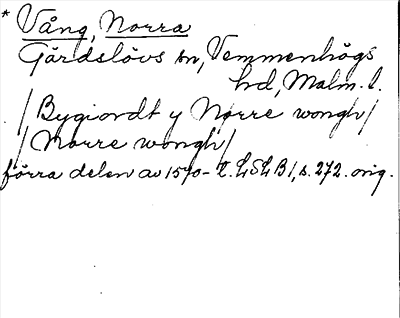 * Vång, Norra
Gärdslövs sn, Vemmenhögs
hd, Malm. l.
/Bygiordt y Nørre wongh/
/Norre wongh/
förra delen av 1570-t. LSLB1, s. 272. orig.